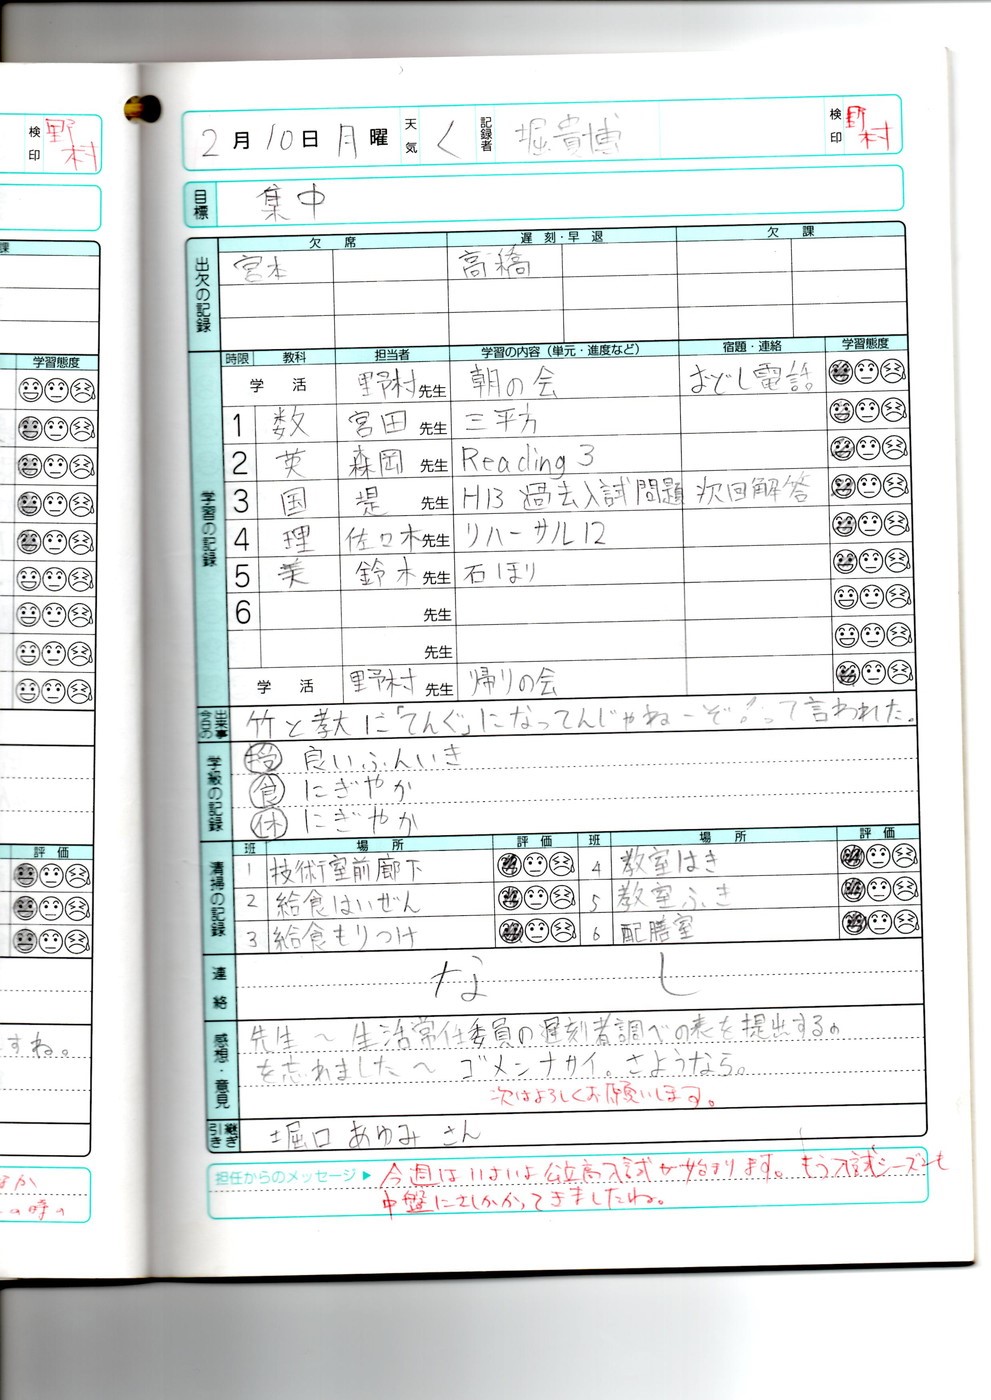 検印 野村
課
学習態度
評価
すね。
2月10日月曜 天気 く 記録者 堀貴博 検印 野村
目標 集中
出欠の記録 欠席 遅刻・早退 欠課
宮本 高橋
学習の記録
時限 教科 担当者 学習の内容(単元・進度など) 宿題・連絡 学習態度
学活 野村先生 朝の会 おどし電話
1 数 宮田先生 三平方
2 英 森岡先生 Reading 3
3 国 堤先生 H13 過去入試問題 次回解答
4 理 佐々木先生 リハーサル12
5 美 鈴木先生 石ほり
6 先生
先生
学活 野村先生 帰りの会
今日の出来事 竹と孝大に「てんぐ」になってんじゃねーぞ!って言われた。
学級の記録
授 良いふんいき
食 にぎやか
休 にぎやか
清掃の記録
班 場所 評価 班 場所 評価
1 技術室前廊下 4 教室はき
2 給食はいぜん 5 教室ふき
3 給食もりつけ 6 配膳室
連絡 なし
感想・意見 先生〜生活常任委員の遅刻者調べの表を提出するの
を忘れました〜 ゴメンナサイ。さようなら。
次はよろしくお願いします。
引き継ぎ 堀口あゆみさん
担任からのメッセージ▶ 今週はいよいよ公立高入試が始まります。もう入試シーズンも
中盤にさしかかってきましたね。